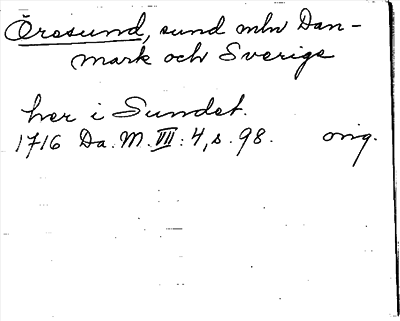 Öresund, sund mln Dan-
mark och Sverige
her i Sundet.
1716 Da. M. VII: 4, s. 98. orig.